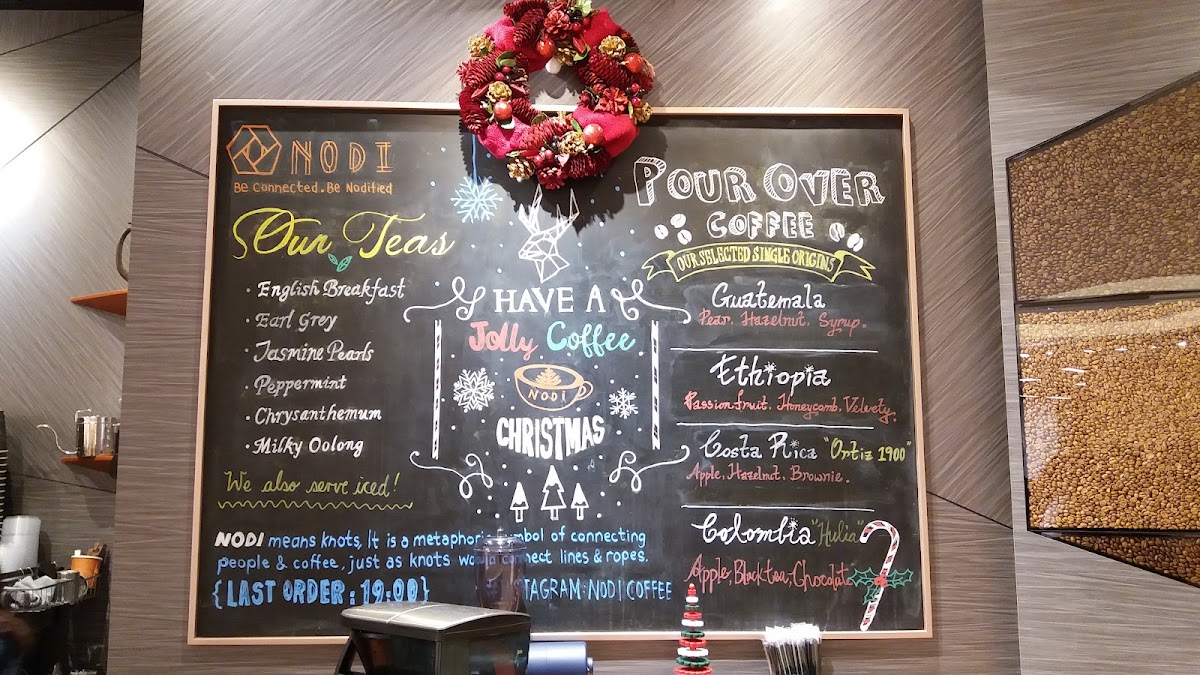 NODI
Be Connected. Be Nodified
Our Teas
· English Breakfast
· Earl Grey
· Jasmine Pearls
· Peppermint
· Chrysanthemum
· Milky Oolong
We also serve iced!
HAVE A
Jolly Coffee
NODI
CHRISTMAS
POUR OVER
COFFEE
OUR SELECTED SINGLE ORIGINS
Guatemala
Pear, Hazelnut, Syrup.
Ethiopia
Passionfruit, Honeycomb, Velvety.
Costa Rica "Ortiz 1900"
Apple, Hazelnut, Brownie.
Colombia "Hulia"
Apple, Black tea, Chocolate
NODI means knots, It is a of connecting
people & coffee, just as knots lines & ropes.
{LAST ORDER: 19:00}
: NODI COFFEE